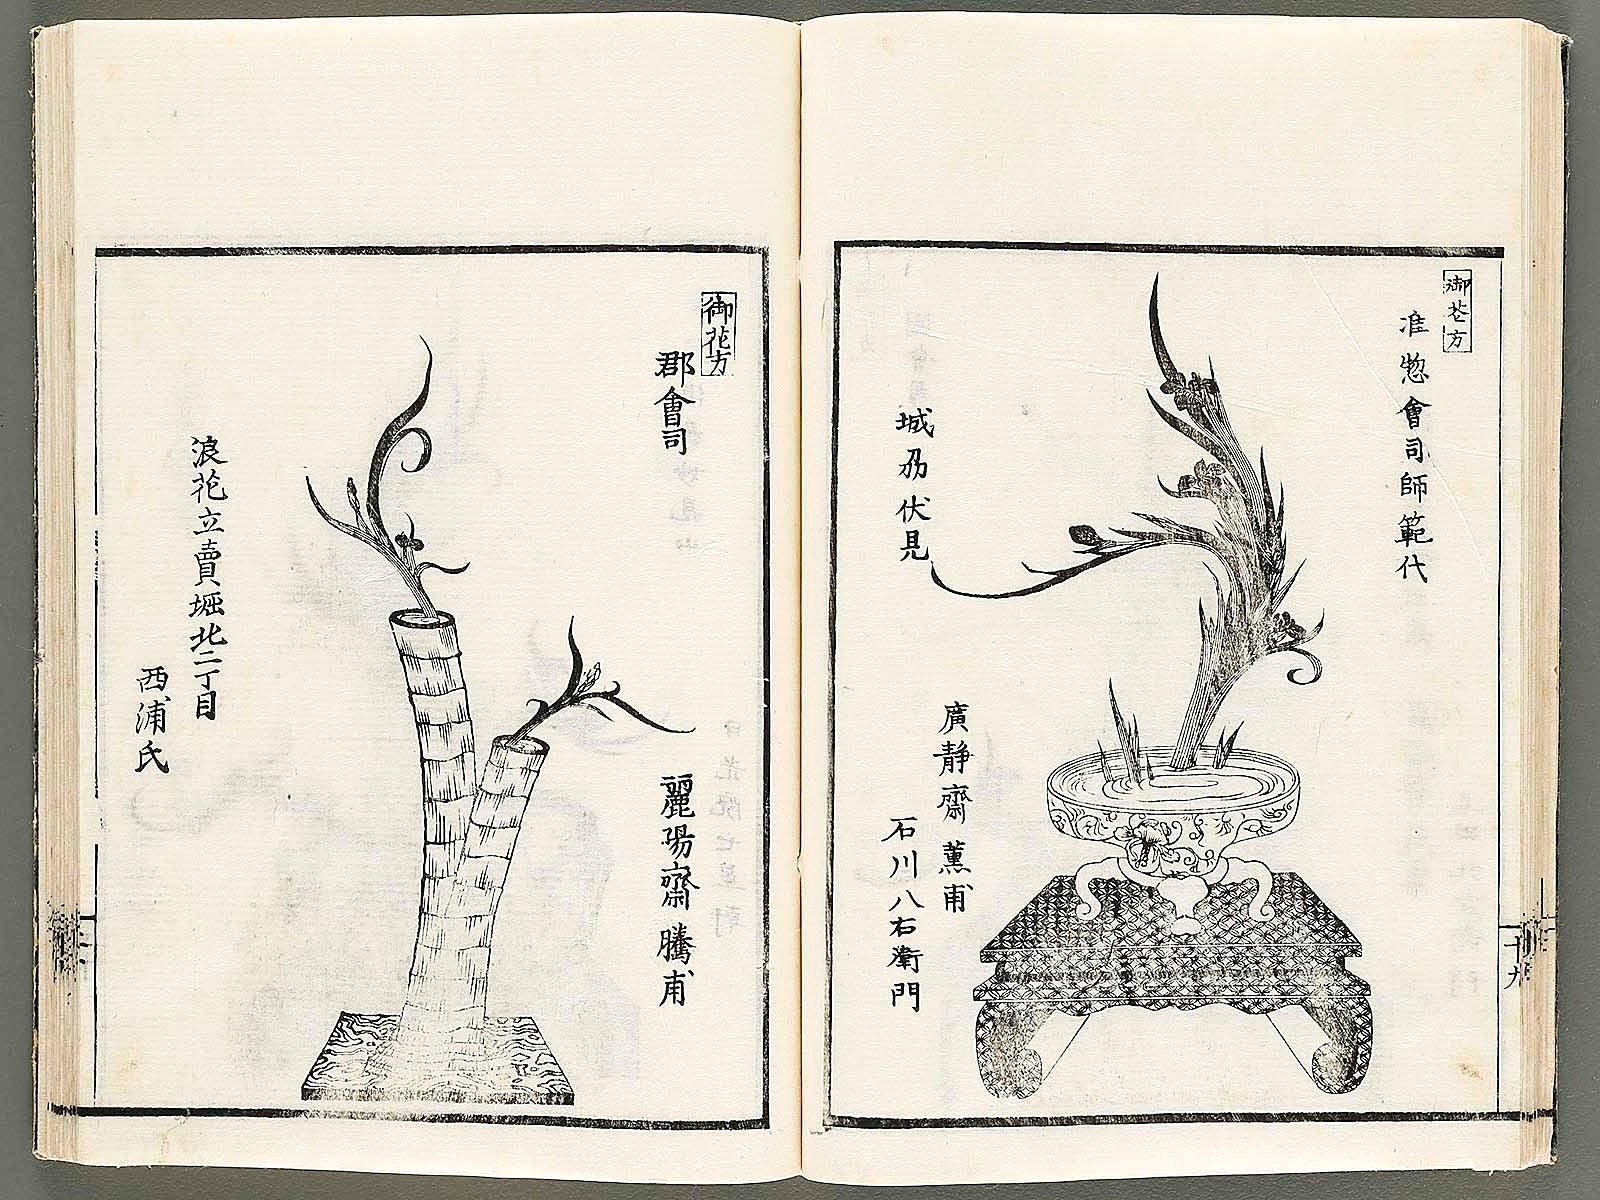 御花方
准惣會司師範代
城刕伏見
廣静齋薫甫
石川八右衛門
十九
御花方
郡會司
麗陽齋騰甫
浪花立賣堀北二丁目
西浦氏